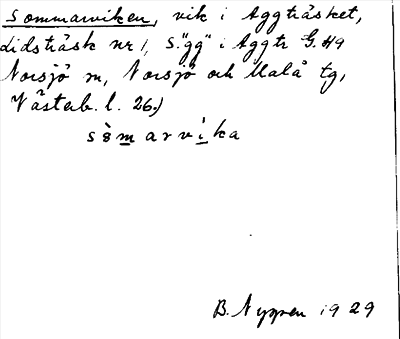 Sommarviken, vik i Aggträsket,
Lidsträsk nr 1, S. "gg" i Aggtr G.H9
Norsjö sn, Norsjö och Malå tg,
Västerb. l. 26.)
sòmarvìka
B. Nyppen 1929